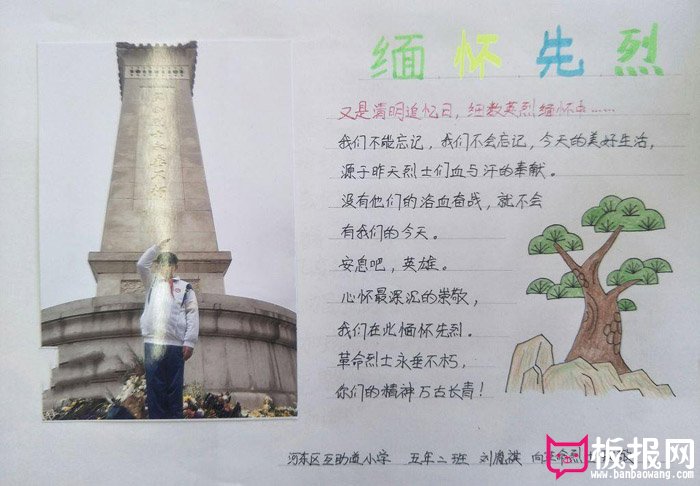 缅怀先烈
又是清明追忆日，细数英烈缅怀长……
我们不能忘记，我们不会忘记，今天的美好生活，
源于昨天烈士们血与汗的奉献。
没有他们的浴血奋战，就不会
有我们的今天。
安息吧，英雄。
心怀最深沉的崇敬，
我们在此缅怀先烈。
革命烈士永垂不朽，
你们的精神万古长青！
河东区互助道小学 五年二班 刘 向革命烈士
板报网
www.banbaowang.com